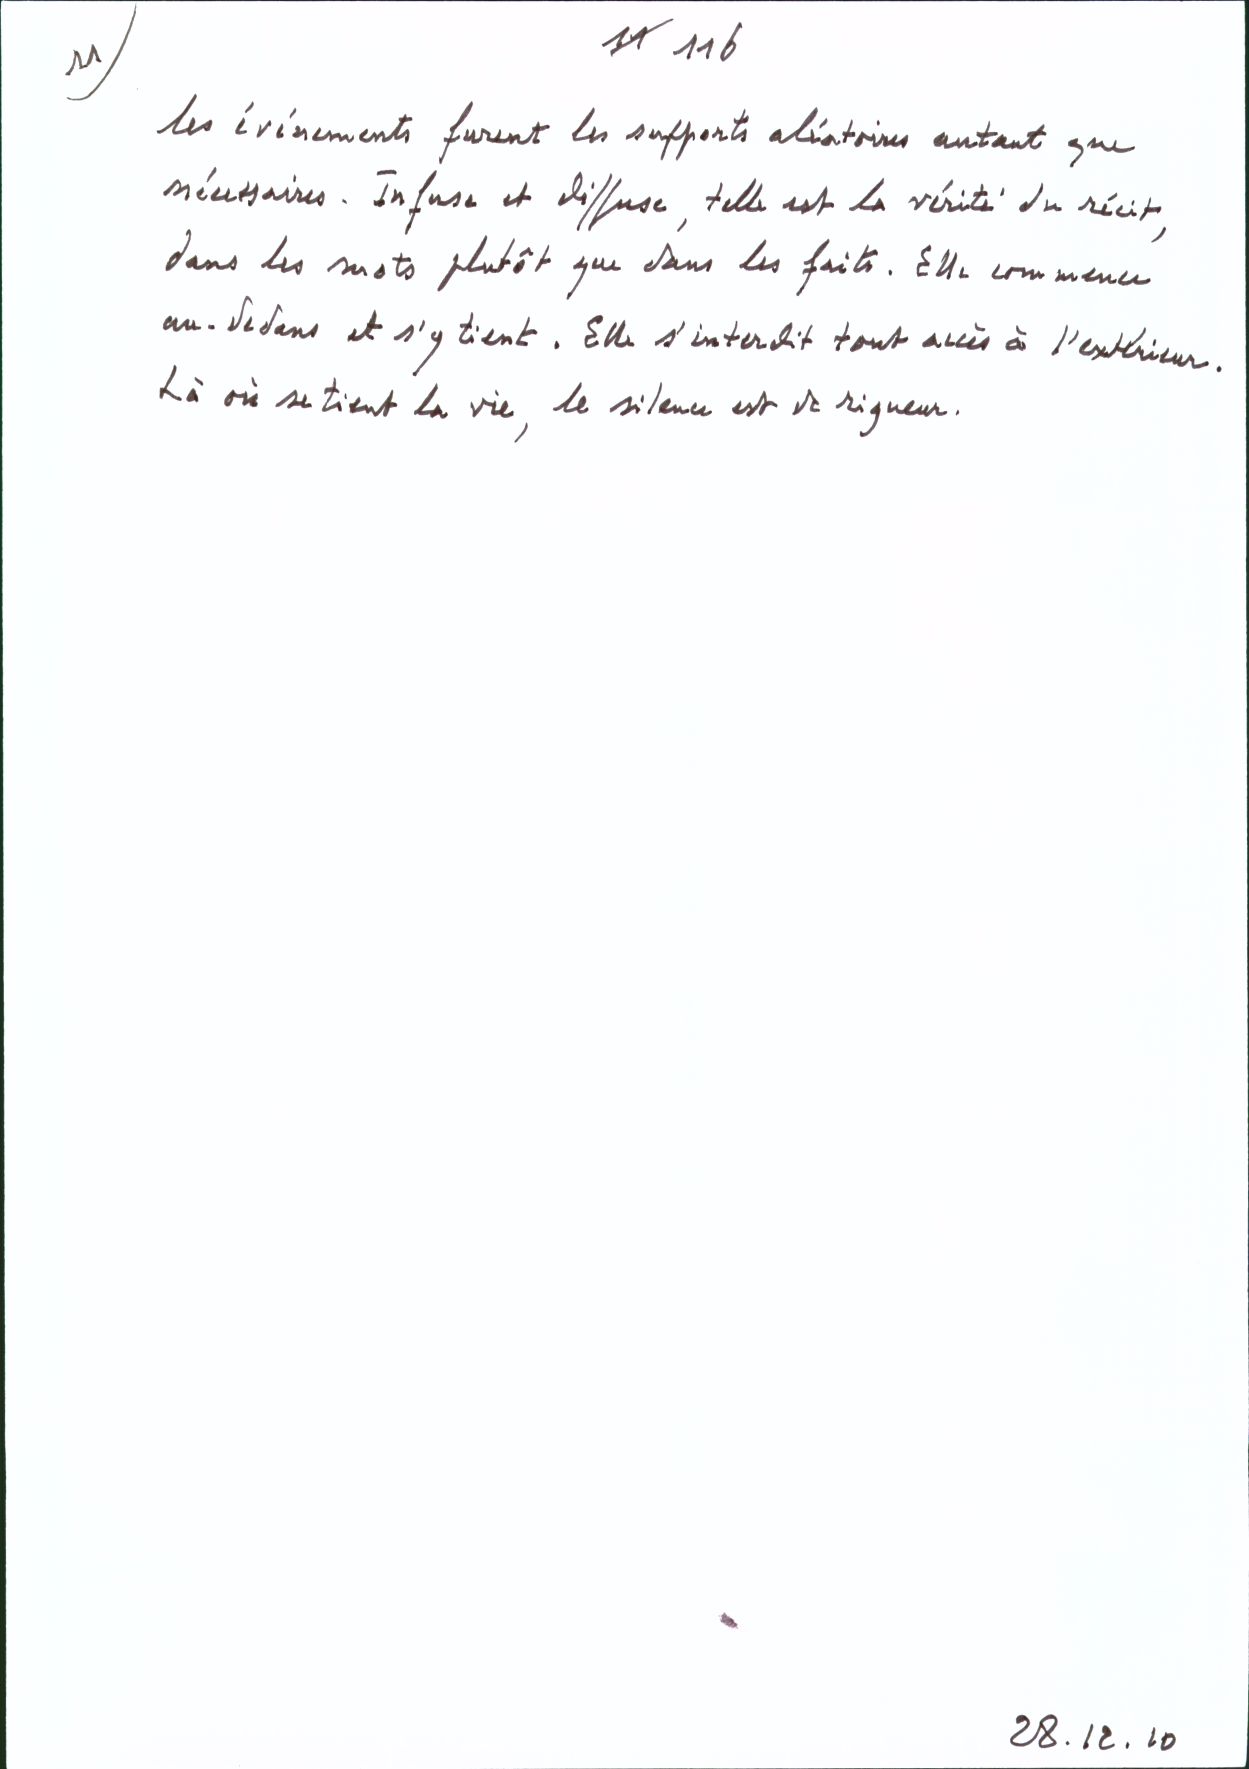 11)
11 116
les événements furent les supports aléatoires autant que
nécessaires. Infuse et diffuse, telle est la vérité du récit,
dans les mots plutôt que dans les faits. Elle commence
au-dedans et s'y tient. Elle s'interdit tout accès à l'extérieur.
Là où se tient la vie, le silence est de rigueur.
28.12.10